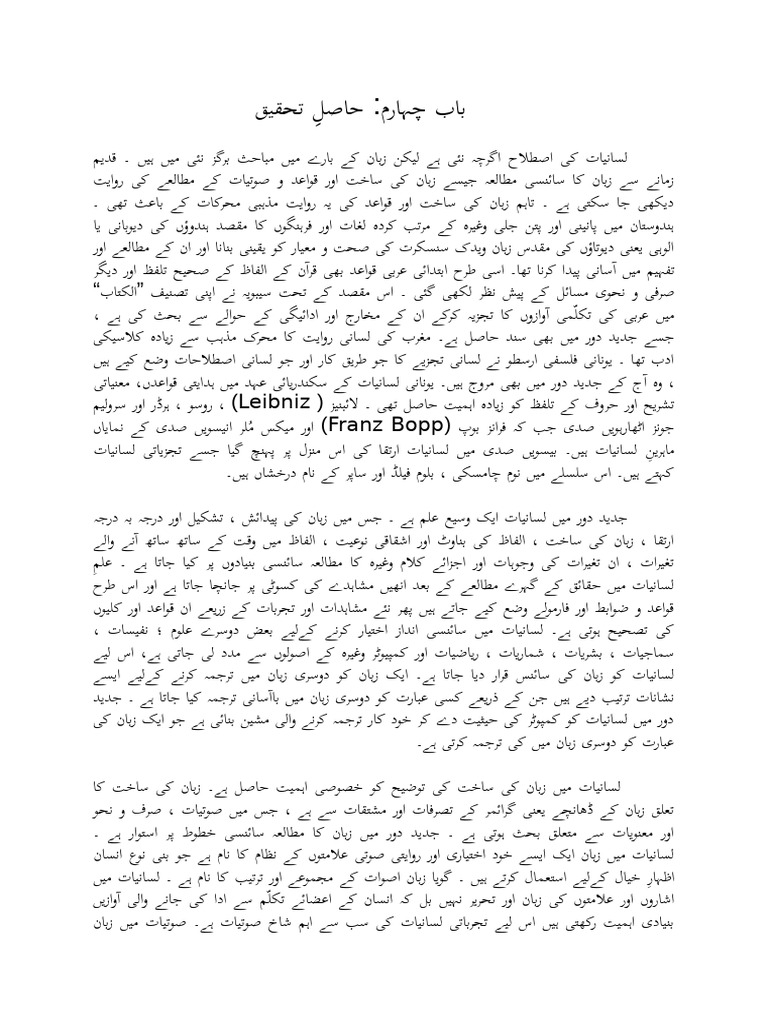 باب چہارم: حاصلِ تحقیق
لسانیات کی اصطلاح اگرچہ نئی ہے لیکن زبان کے بارے میں مباحث ہرگز نئی میں ہیں ۔ قدیم
زمانے سے زبان کا سائنسی مطالعہ جیسے زبان کی ساخت اور قواعد و صوتیات کے مطالعے کی روایت
دیکھی جا سکتی ہے ۔ تاہم زبان کی ساخت اور قواعد کی یہ روایت مذہبی محرکات کے باعث تھی ۔
ہندوستان میں پانینی اور پتن جلی وغیرہ کے مرتب کردہ لغات اور فرہنگوں کا مقصد ہندوؤں کی دیوبانی یا
الوہی یعنی دیوتاؤں کی مقدس زبان ویدک سنسکرت کی صحت و معیار کو یقینی بنانا اور ان کے مطالعے اور
تفہیم میں آسانی پیدا کرنا تھا۔ اسی طرح ابتدائی عربی قواعد بھی قرآن کے الفاظ کے صحیح تلفظ اور دیگر
صرفی و نحوی مسائل کے پیش نظر لکھی گئی ۔ اس مقصد کے تحت سیبویہ نے اپنی تصنیف ”الکتاب“
میں عربی کی تکلّمی آوازوں کا تجزیہ کرکے ان کے مخارج اور ادائیگی کے حوالے سے بحث کی ہے ،
جسے جدید دور میں بھی سند حاصل ہے۔ مغرب کی لسانی روایت کا محرک مذہب سے زیادہ کلاسیکی
ادب تھا ۔ یونانی فلسفی ارسطو نے لسانی تجزیے کا جو طریق کار اور جو لسانی اصطلاحات وضع کیے ہیں
، وہ آج کے جدید دور میں بھی مروج ہیں۔ یونانی لسانیات کے سکندریائی عہد میں ہدایتی قواعدں، معنیاتی
تشریح اور حروف کے تلفظ کو زیادہ اہمیت حاصل تھی ۔ لائبنیز ( Leibniz) ، روسو ، ہرڈر اور سرولیم
جونز اٹھارہویں صدی جب کہ فرانز بوپ (Franz Bopp) اور میکس مُلر انیسویں صدی کے نمایاں
ماہرینِ لسانیات ہیں۔ بیسویں صدی میں لسانیات ارتقا کی اس منزل پر پہنچ گیا جسے تجزیاتی لسانیات
کہتے ہیں۔ اس سلسلے میں نوم چامسکی ، بلوم فیلڈ اور ساپر کے نام درخشاں ہیں۔
جدید دور میں لسانیات ایک وسیع علم ہے ۔ جس میں زبان کی پیدائش ، تشکیل اور درجہ بہ درجہ
ارتقا ، زبان کی ساخت ، الفاظ کی بناوٹ اور اشقاقی نوعیت ، الفاظ میں وقت کے ساتھ ساتھ آنے والے
تغیرات ، ان تغیرات کی وجوہات اور اجزائے کلام وغیرہ کا مطالعہ سائنسی بنیادوں پر کیا جاتا ہے ۔ علمِ
لسانیات میں حقائق کے گہرے مطالعے کے بعد انھیں مشاہدے کی کسوٹی پر جانچا جاتا ہے اور اس طرح
قواعد و ضوابط اور فارمولے وضع کیے جاتے ہیں پھر نئے مشاہدات اور تجربات کے زریعے ان قواعد اور کلیوں
کی تصحیح ہوتی ہے۔ لسانیات میں سائنسی انداز اختیار کرنے کےلیے بعض دوسرے علوم ؛ نفیسات ،
سماجیات ، بشریات ، شماریات ، ریاضیات اور کمپیوٹر وغیرہ کے اصولوں سے مدد لی جاتی ہے، اس لیے
لسانیات کو زبان کی سائنس قرار دیا جاتا ہے۔ ایک زبان کو دوسری زبان میں ترجمہ کرنے کےلیے ایسے
نشانات ترتیب دیے ہیں جن کے ذریعے کسی عبارت کو دوسری زبان میں باآسانی ترجمہ کیا جاتا ہے ۔ جدید
دور میں لسانیات کو کمپوٹر کی حیثیت دے کر خود کار ترجمہ کرنے والی مشین بنائی ہے جو ایک زبان کی
عبارت کو دوسری زبان میں کی ترجمہ کرتی ہے۔
لسانیات میں زبان کی ساخت کی توضیح کو خصوصی اہمیت حاصل ہے۔ زبان کی ساخت کا
تعلق زبان کے ڈھانچے یعنی گرائمر کے تصرفات اور مشتقات سے ہے ، جس میں صوتیات ، صرف و نحو
اور معنویات سے متعلق بحث ہوتی ہے ۔ جدید دور میں زبان کا مطالعہ سائنسی خطوط پر استوار ہے ۔
لسانیات میں زبان ایک ایسے خود اختیاری اور روایتی صوتی علامتوں کے نظام کا نام ہے جو بنی نوع انسان
اظہارِ خیال کےلیے استعمال کرتے ہیں ۔ گویا زبان اصوات کے مجموعے اور ترتیب کا نام ہے ۔ لسانیات میں
اشاروں اور علامتوں کی زبان اور تحریر نہیں بل کہ انسان کے اعضائے تکلّم سے ادا کی جانے والی آوازیں
بنیادی اہمیت رکھتی ہیں اس لیے تجرباتی لسانیات کی سب سے اہم شاخ صوتیات ہے۔ صوتیات میں زبان